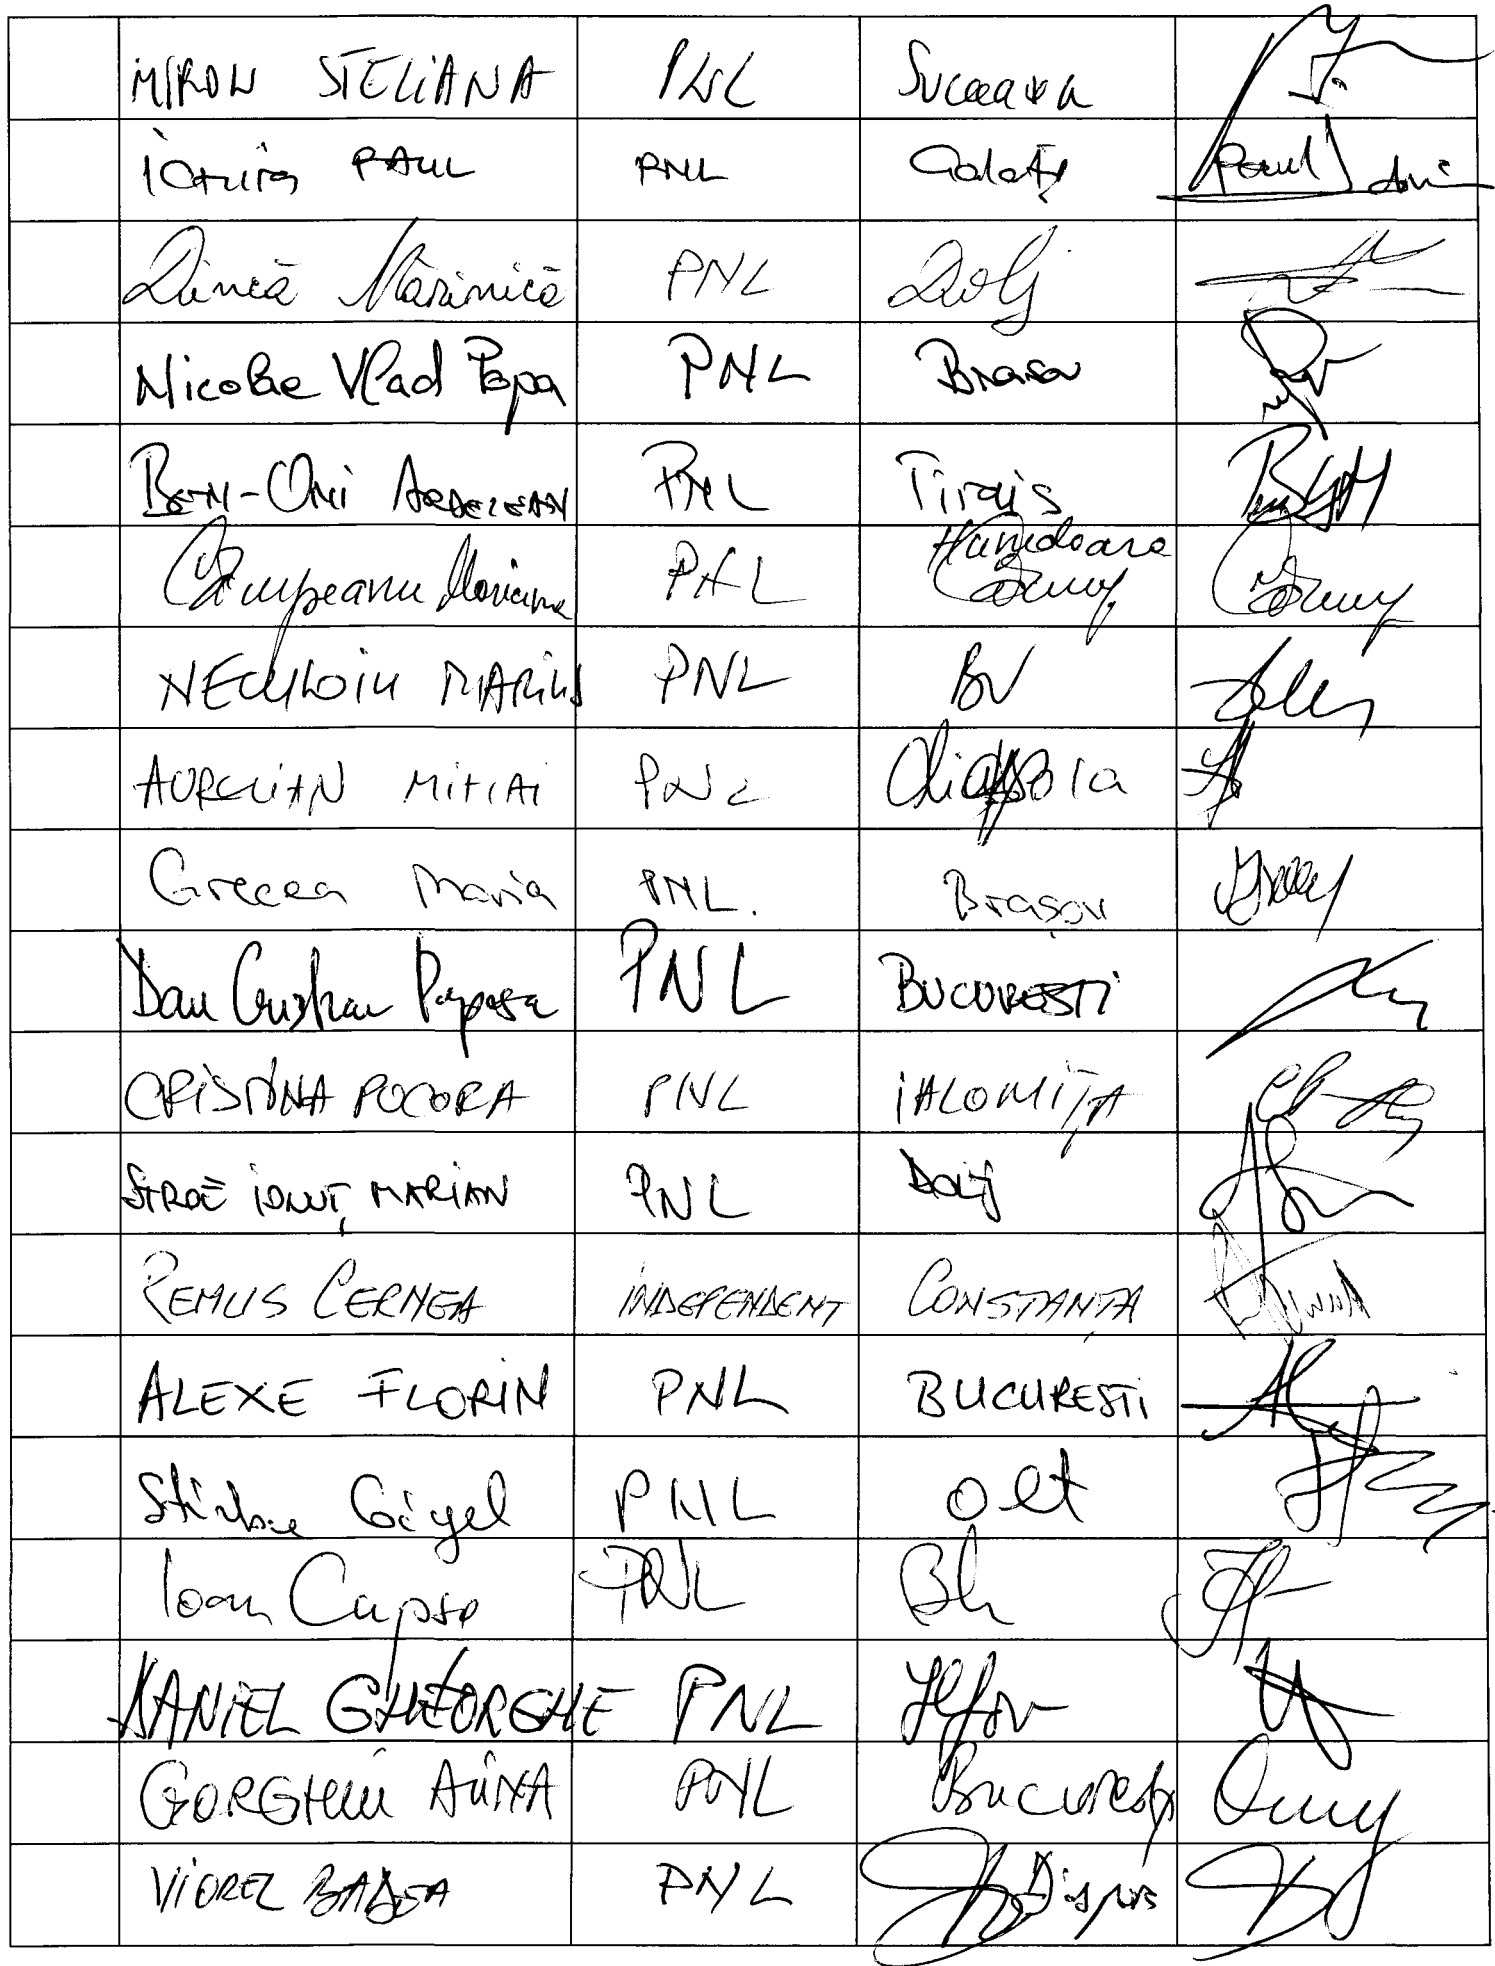 MIRON STELIANA PNL Suceava
PAUL PNL Galați
Dincă Mărinică PNL Dolj
Nicolae Vlad Popa PNL Brasov
BEN-ONI ARDELEAN PNL Timis
Câmpeanu Mariana PNL Hunedoara
NECHLOIU MARIUS PNL BV
AURELIAN MIHAI PNL Diaspora
Grecea Maria PNL. Brașov
Dan Cristian Popescu PNL BUCUREȘTI
CRISTINA POCORA PNL IALOMIȚA
STROE IONUȚ MARIAN PNL Dolj
REMUS CERNEA INDEPENDENT CONSTANȚA
ALEXE FLORIN PNL BUCURESTI
Stirbu Gigel PNL Olt
Ioan Cupșa PNL Bh
DANIEL GHEORGHE PNL Ilfov
GORGHIU ALINA PNL București
VIOREL BADEA PNL